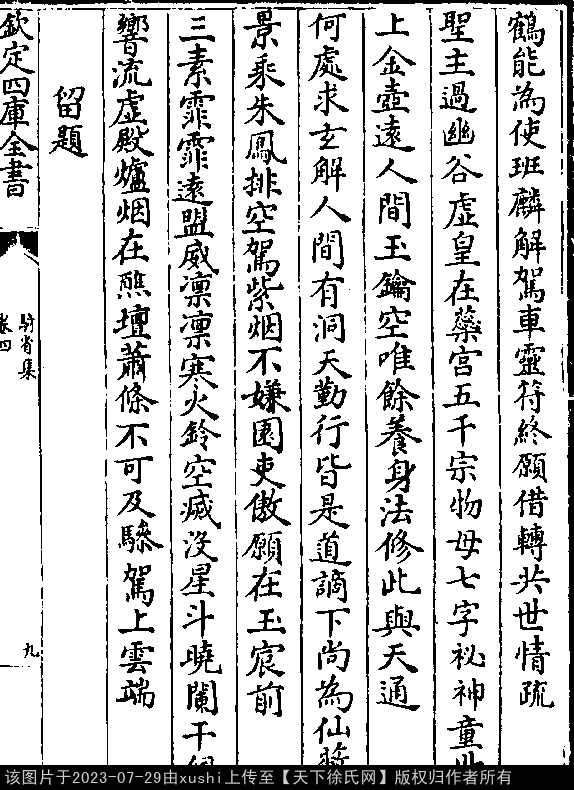 鶴能為使班麟解駕車靈符終願借轉共世情疏
聖主過幽谷虛皇在蘂宮五千宗物母七字祕神童
上金壺遠人間玉鑰空唯餘養身法修此與天通
何處求玄解人間有洞天勤行皆是道謫下尚為仙
景乘朱鳳排空駕紫烟不嫌園吏傲願在玉宸前
三素霏霏遠盟威凜凜寒火鈴空滅沒星斗曉闌干
響流虛殿爐烟在熊壇蕭條不可及驂駕上雲端
留題
欽定四庫全書
騎省集
卷四
九
该图片于2023-07-29由xushi上传至【天下徐氏网】版权归作者所有